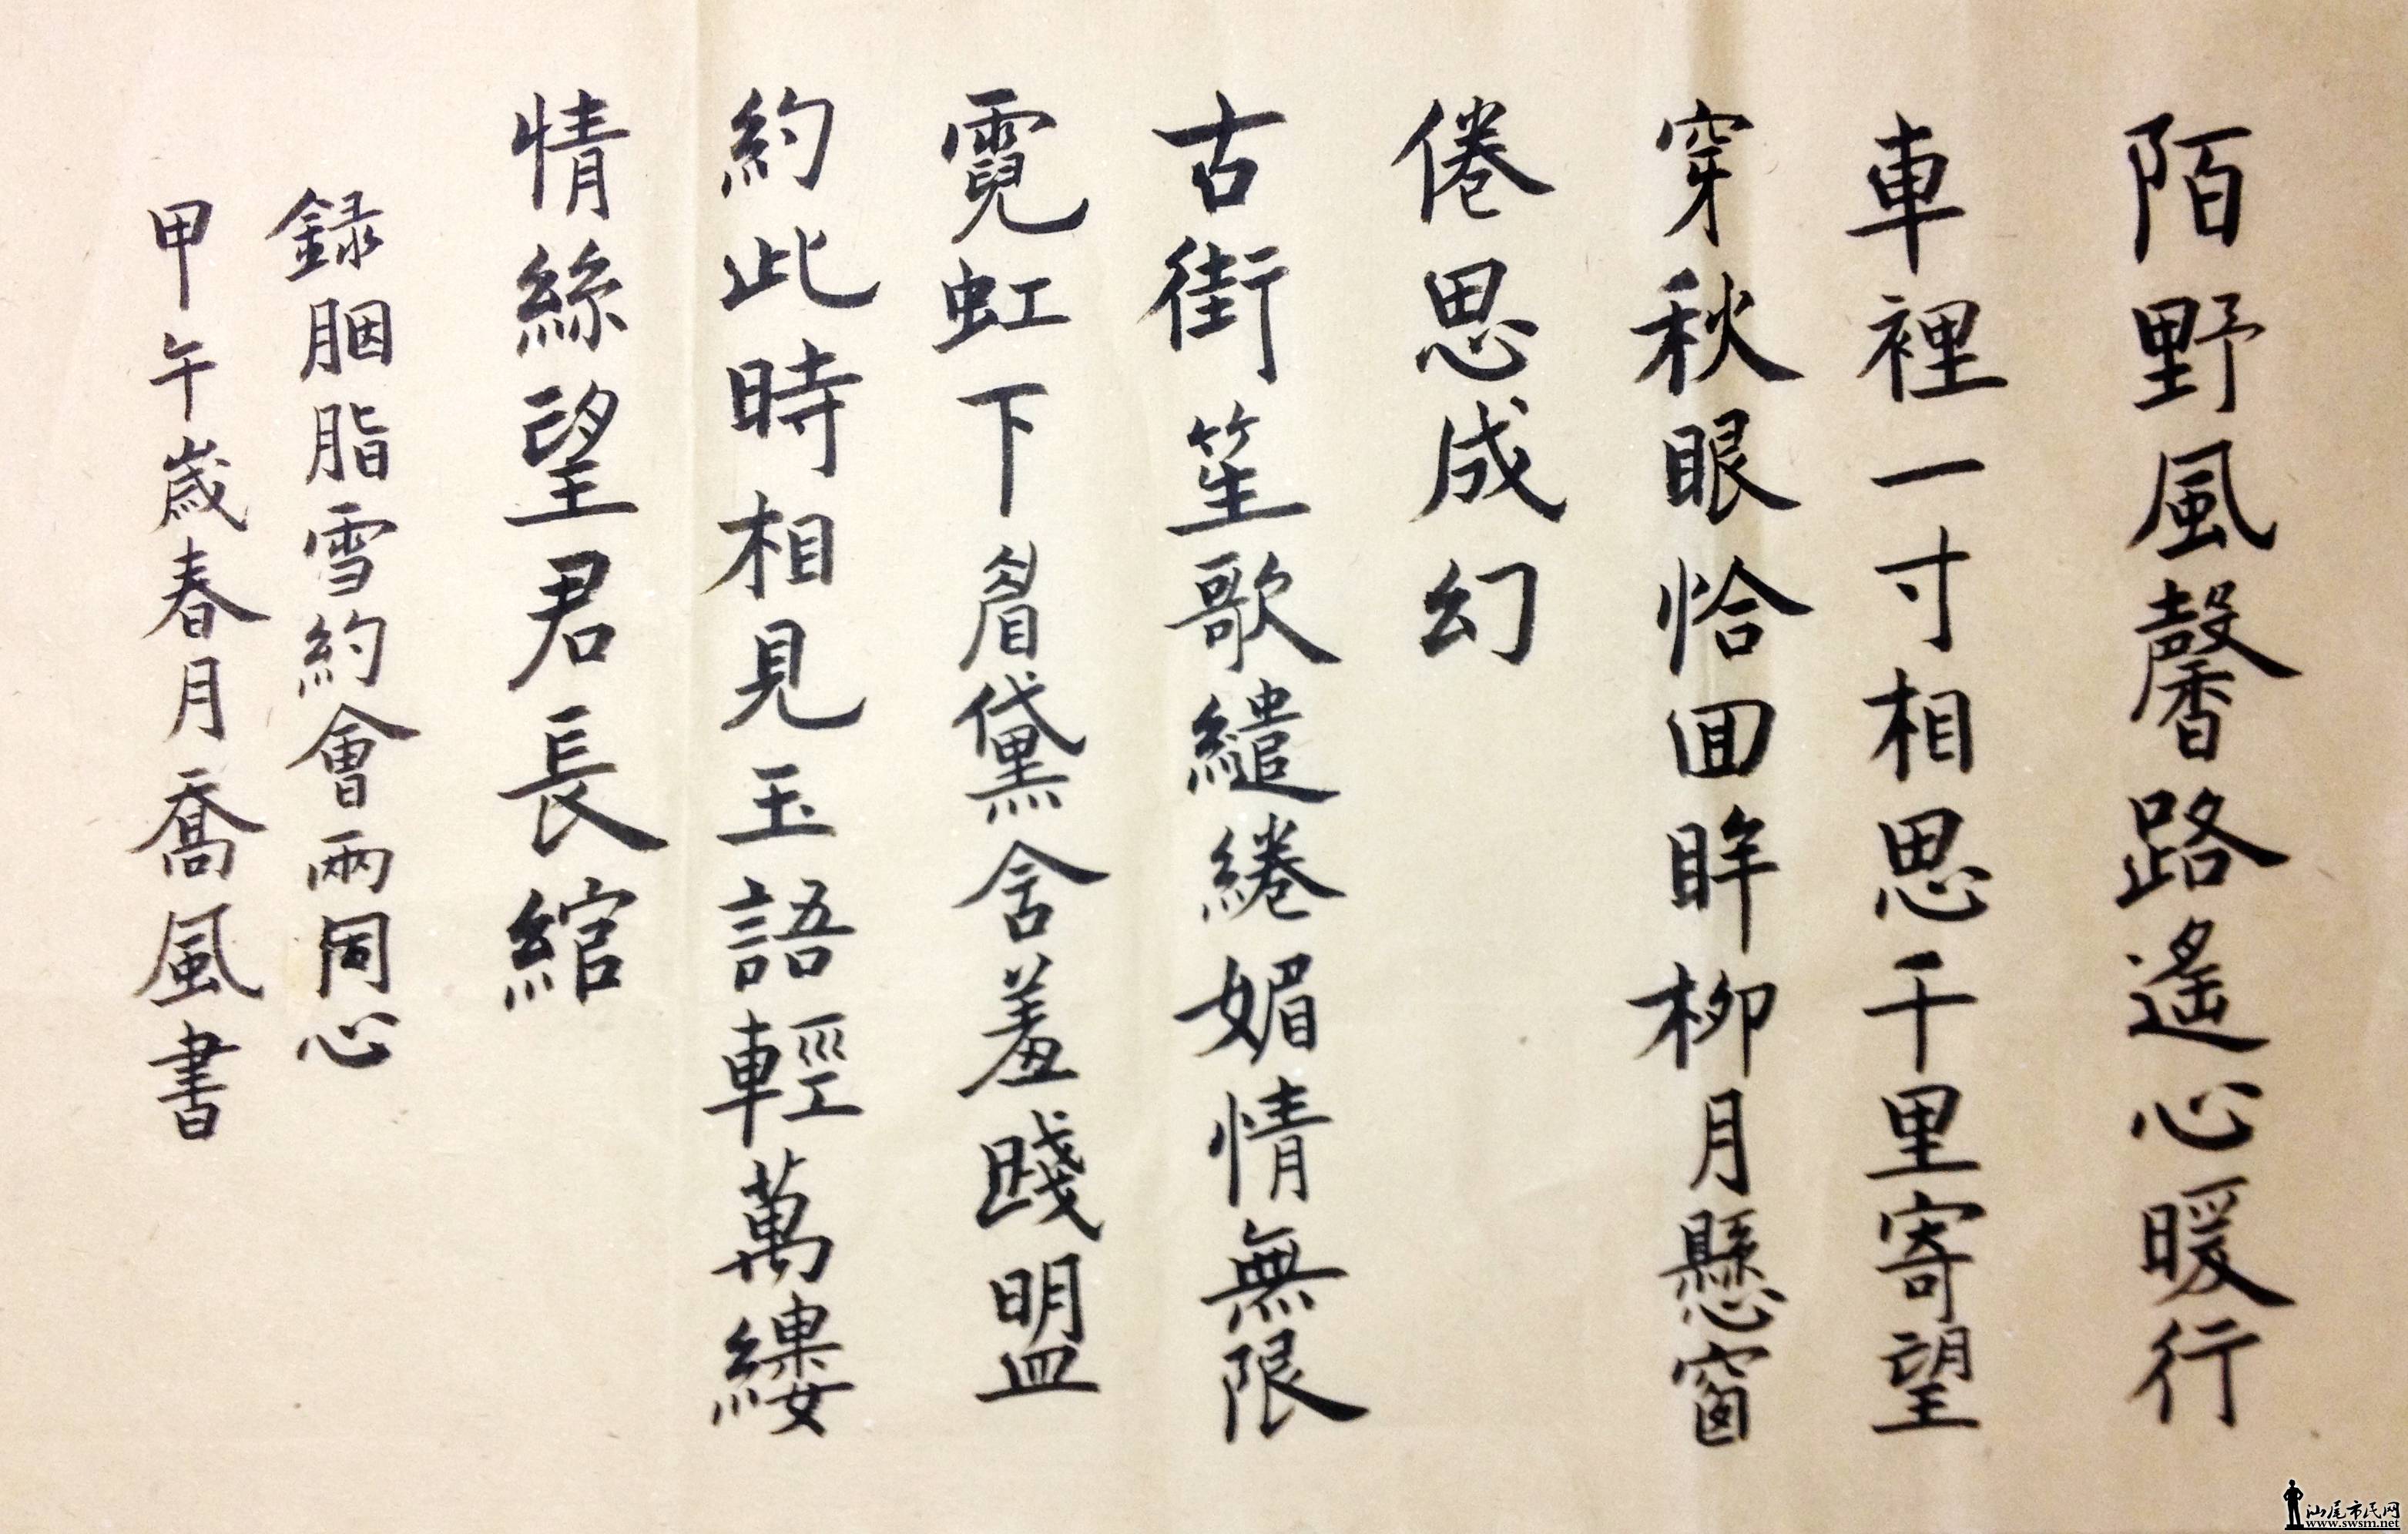 陌野風馨路遙心暖行
車裡一寸相思千里寄望
穿秋眼恰回眸柳月懸窗
倦思成幻
古街笙歌繾綣媚情無限
霓虹下眉黛含羞踐盟
約此時相見玉語輕萬縷
情絲望君長綰
録胭脂雪約會兩同心
甲午歲春月喬風書
汕尾市民网
www.swsm.net